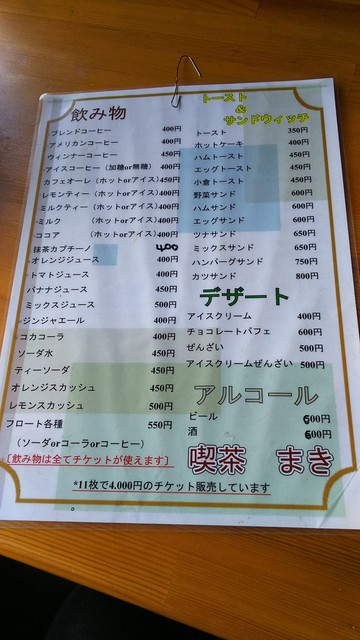 飲み物
ブレンドコーヒー 400円
アメリカンコーヒー 400円
ウィンナーコーヒー 450円
アイスコーヒー (加糖or無糖) 400円
カフェオーレ(ホットorアイス) 450円
レモンティー(ホットorアイス) 400円
ミルクティー(ホットorアイス) 400円
ミルク (ホットorアイス) 400円
ココア (ホットorアイス) 400円
抹茶カプチーノ 400
オレンジジュース 400円
トマトジュース 400円
バナナジュース 450円
ミックスジュース 500円
ジンジャエール 400円
コカコーラ 400円
ソーダ水 450円
ティーソーダ 450円
オレンジスカッシュ 450円
レモンスカッシュ 500円
フロート各種 550円
(ソーダorコーラorコーヒー)
[飲み物は全てチケットが使えます]
トースト
&
サンドウィッチ
トースト 350円
ホットケーキ 400円
ハムトースト 450円
エッグトースト 450円
小倉トースト 450円
野菜サンド 600円
ハムサンド 600円
エッグサンド 600円
ツナサンド 650円
ミックスサンド 650円
ハンバーグサンド 750円
カツサンド 800円
デザート
アイスクリーム 400円
チョコレートパフェ 600円
ぜんざい 500円
アイスクリームぜんざい 500円
アルコール
ビール 600円
酒 600円
喫茶 まき
*11枚で4.000円のチケット販売しています